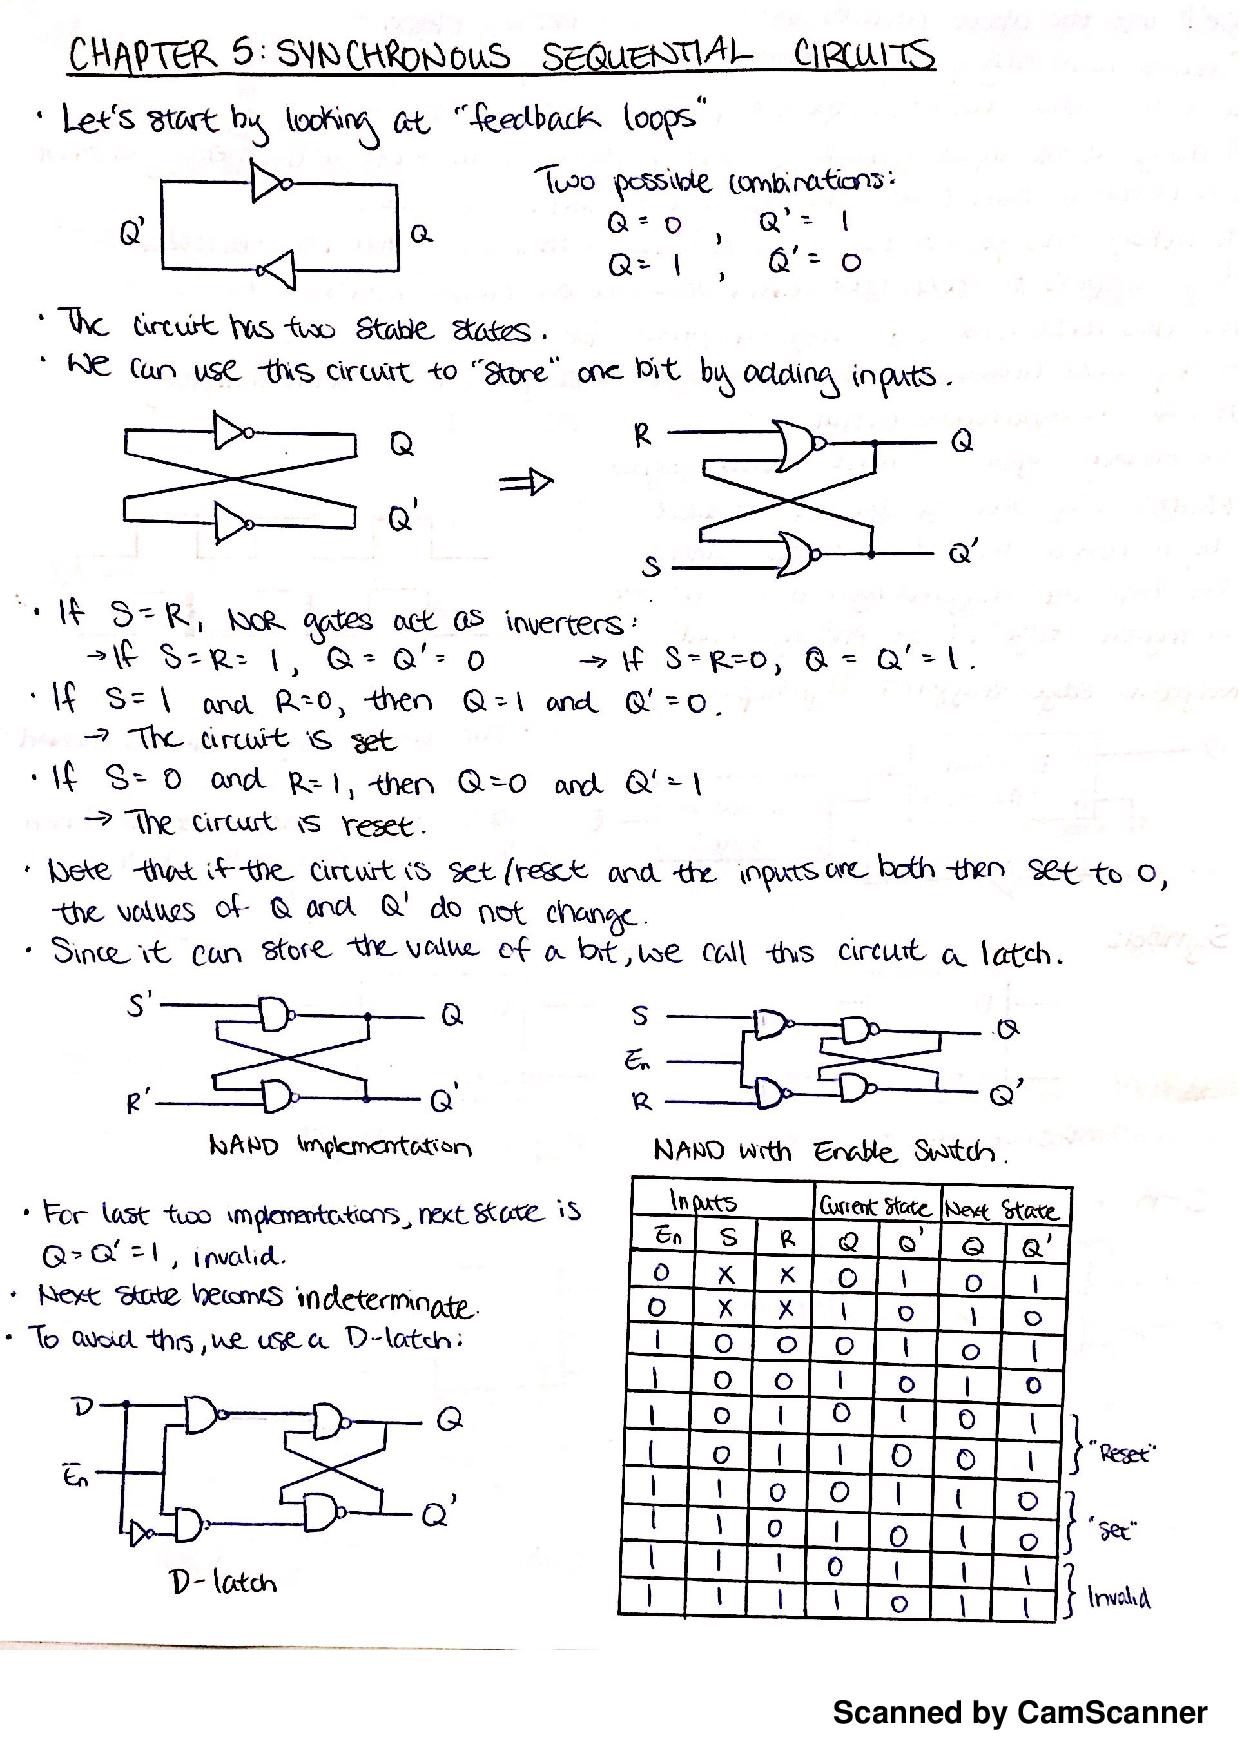 CHAPTER 5: SYNCHRONOUS SEQUENTIAL CIRCUITS
• Let's start by looking at "feedback loops"
Q' Q
Two possible combinations:
Q = 0 , Q' = 1
Q = 1 , Q' = 0
• The circuit has two stable states.
• We can use this circuit to "store" one bit by adding inputs.
Q
Q'
⇒
R Q
S Q'
• If S=R, NOR gates act as inverters:
→ If S=R=1, Q = Q' = 0 → If S=R=0, Q = Q' = 1.
• If S=1 and R=0, then Q=1 and Q'=0.
→ The circuit is set
• If S=0 and R=1, then Q=0 and Q'=1
→ The circuit is reset.
• Note that if the circuit is set/reset and the inputs are both then set to 0,
the values of Q and Q' do not change.
• Since it can store the value of a bit, we call this circuit a latch.
S' Q
R' Q'
NAND Implementation
S Q
En
R Q'
NAND with Enable Switch.
• For last two implementations, next state is
Q=Q'=1, invalid.
• Next state becomes indeterminate.
• To avoid this, we use a D-latch:
D Q
En
Q'
D-latch
Inputs Current State Next State
En S R Q Q' Q Q'
0 X X 0 1 0 1
0 X X 1 0 1 0
1 0 0 0 1 0 1
1 0 0 1 0 1 0
1 0 1 0 1 0 1
1 0 1 1 0 0 1
"Reset"
1 1 0 0 1 1 0
1 1 0 1 0 1 0
"Set"
1 1 1 0 1 1 1
1 1 1 1 0 1 1
Invalid
Scanned by CamScanner